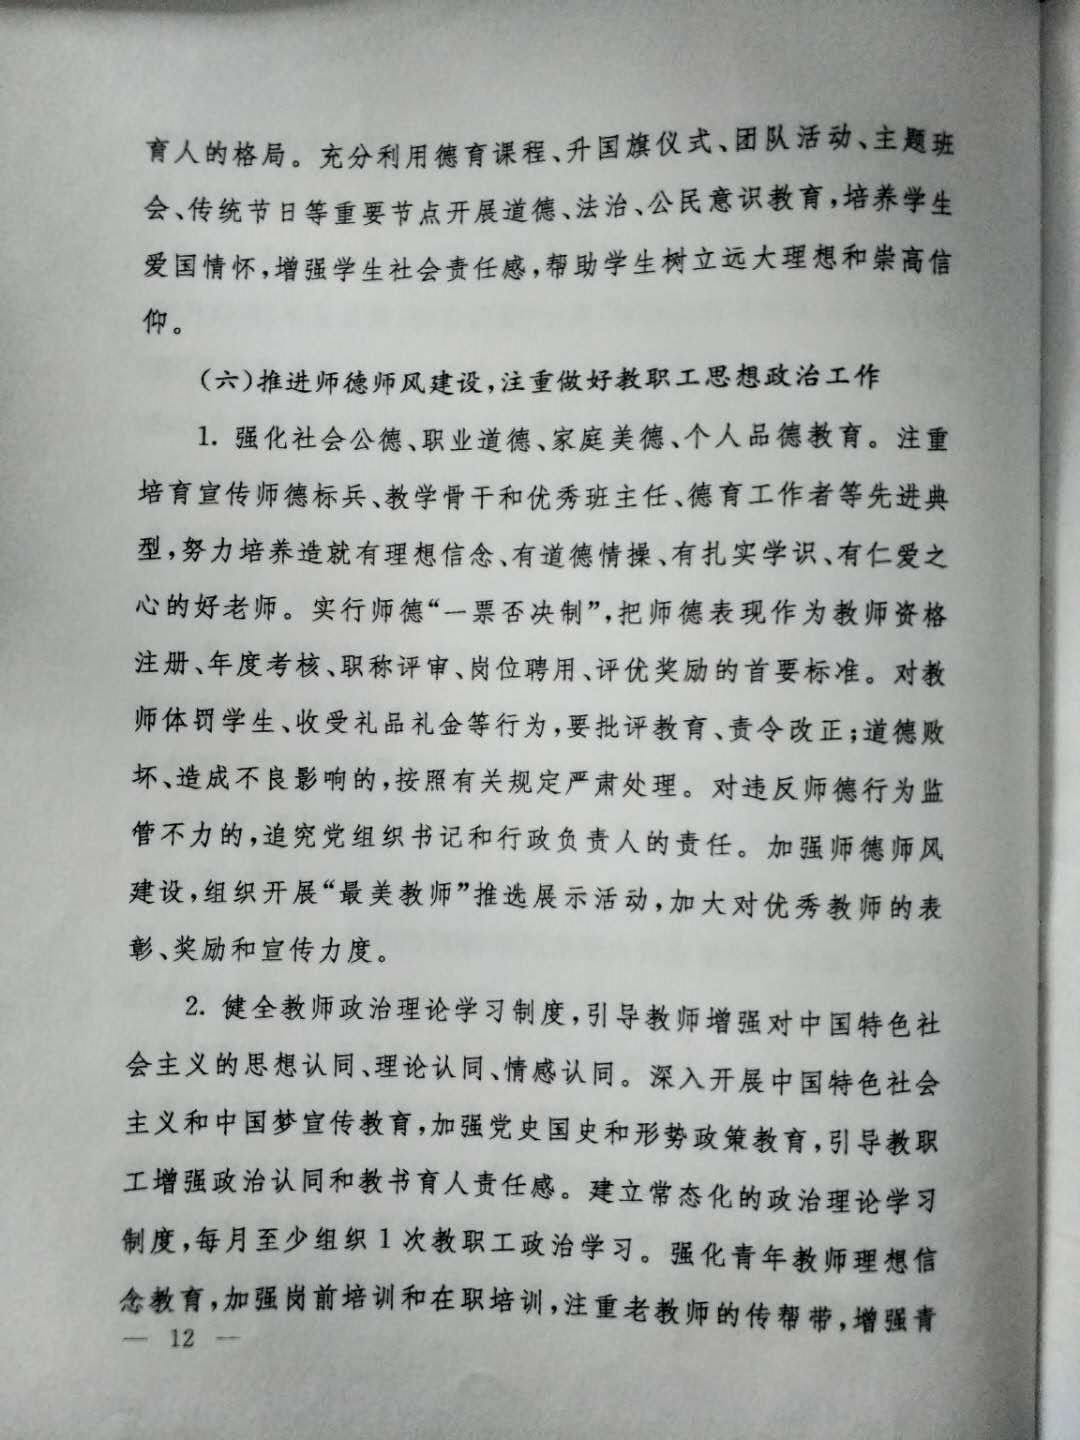 育人的格局。充分利用德育课程、升国旗仪式、团队活动、主题班
会、传统节日等重要节点开展道德、法治、公民意识教育,培养学生
爱国情怀,增强学生社会责任感,帮助学生树立远大理想和崇高信
仰。
(六)推进师德师风建设,注重做好教职工思想政治工作
1. 强化社会公德、职业道德、家庭美德、个人品德教育。注重
培育宣传师德标兵、教学骨干和优秀班主任、德育工作者等先进典
型,努力培养造就有理想信念、有道德情操、有扎实学识、有仁爱之
心的好老师。实行师德“一票否决制”,把师德表现作为教师资格
注册、年度考核、职称评审、岗位聘用、评优奖励的首要标准。对教
师体罚学生、收受礼品礼金等行为,要批评教育、责令改正;道德败
坏、造成不良影响的,按照有关规定严肃处理。对违反师德行为监
管不力的,追究党组织书记和行政负责人的责任。加强师德师风
建设,组织开展“最美教师”推选展示活动,加大对优秀教师的表
彰、奖励和宣传力度。
2. 健全教师政治理论学习制度,引导教师增强对中国特色社
会主义的思想认同、理论认同、情感认同。深入开展中国特色社会
主义和中国梦宣传教育,加强党史国史和形势政策教育,引导教职
工增强政治认同和教书育人责任感。建立常态化的政治理论学习
制度,每月至少组织1次教职工政治学习。强化青年教师理想信
念教育,加强岗前培训和在职培训,注重老教师的传帮带,增强青
— 12 —